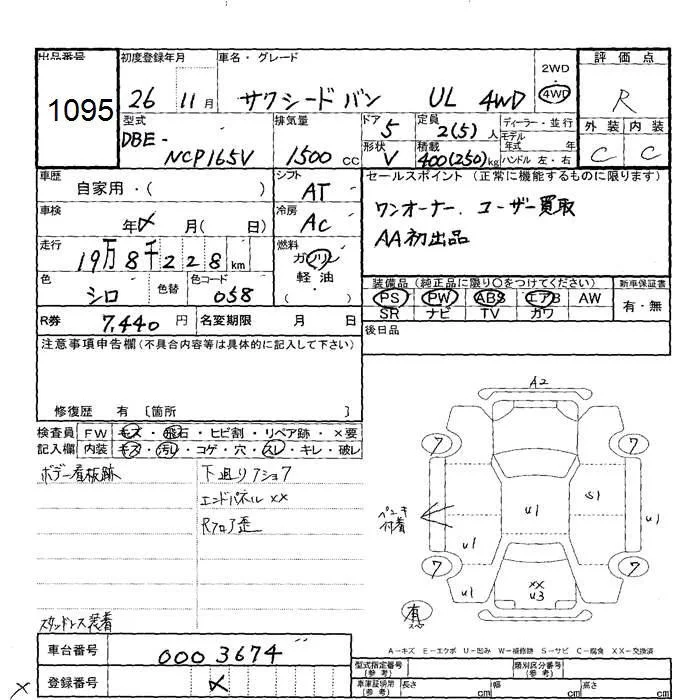 出品番号 初度登録年月 車名・グレード 2WD・4WD 評価点
1095 26 11月 サクシードバン UL 4WD R
型式 排気量 ドア 5 定員 2(5)人 ディーラー・並行 外装 内装
モデル年式 年
DBE-NCP165V 1500cc 形状 V 積載 400(250)kg ハンドル 左・右 C C
車歴 シフト セールスポイント(正常に機能するものに限ります)
自家用・( ) AT
ワンオーナー、ユーザー買取
車検 冷房
年 月( 日) AC
AA初出品
走行 燃料
19万8千228km ガソリン
軽油
・( )
色 色替 色コード
シロ 058
装備品(純正品に限り○をつけてください) 新車保証書
PS PW ABS エアB AW 有・無
SR ナビ TV カワ
R券 7,440円 名変期限 月 日
後日品
注意事項申告欄(不具合内容等は具体的に記入して下さい)
修復歴 有 〔箇所 〕
検査員 FW キズ・飛石・ヒビ割・リペア跡・×要
記入欄 内装 キズ・汚れ・コゲ・穴・スレ・キレ・破レ
ボデー看板跡 下廻りサビ
エンドパネル××
Rフロア歪
スタッドレス装着
A2
7 7
S1
U1
ペンキ付着
U1
U1
7 7
U1
××
U3
有
A-キズ E-エクボ U-凹み W-補修跡 S-サビ C-腐食 XX-交換済
車台番号 0003674
型式指定番号(参考) 類別区分番号(参考)
登録番号
車庫証明用(参考) 長さ cm 幅 cm 高さ cm
×